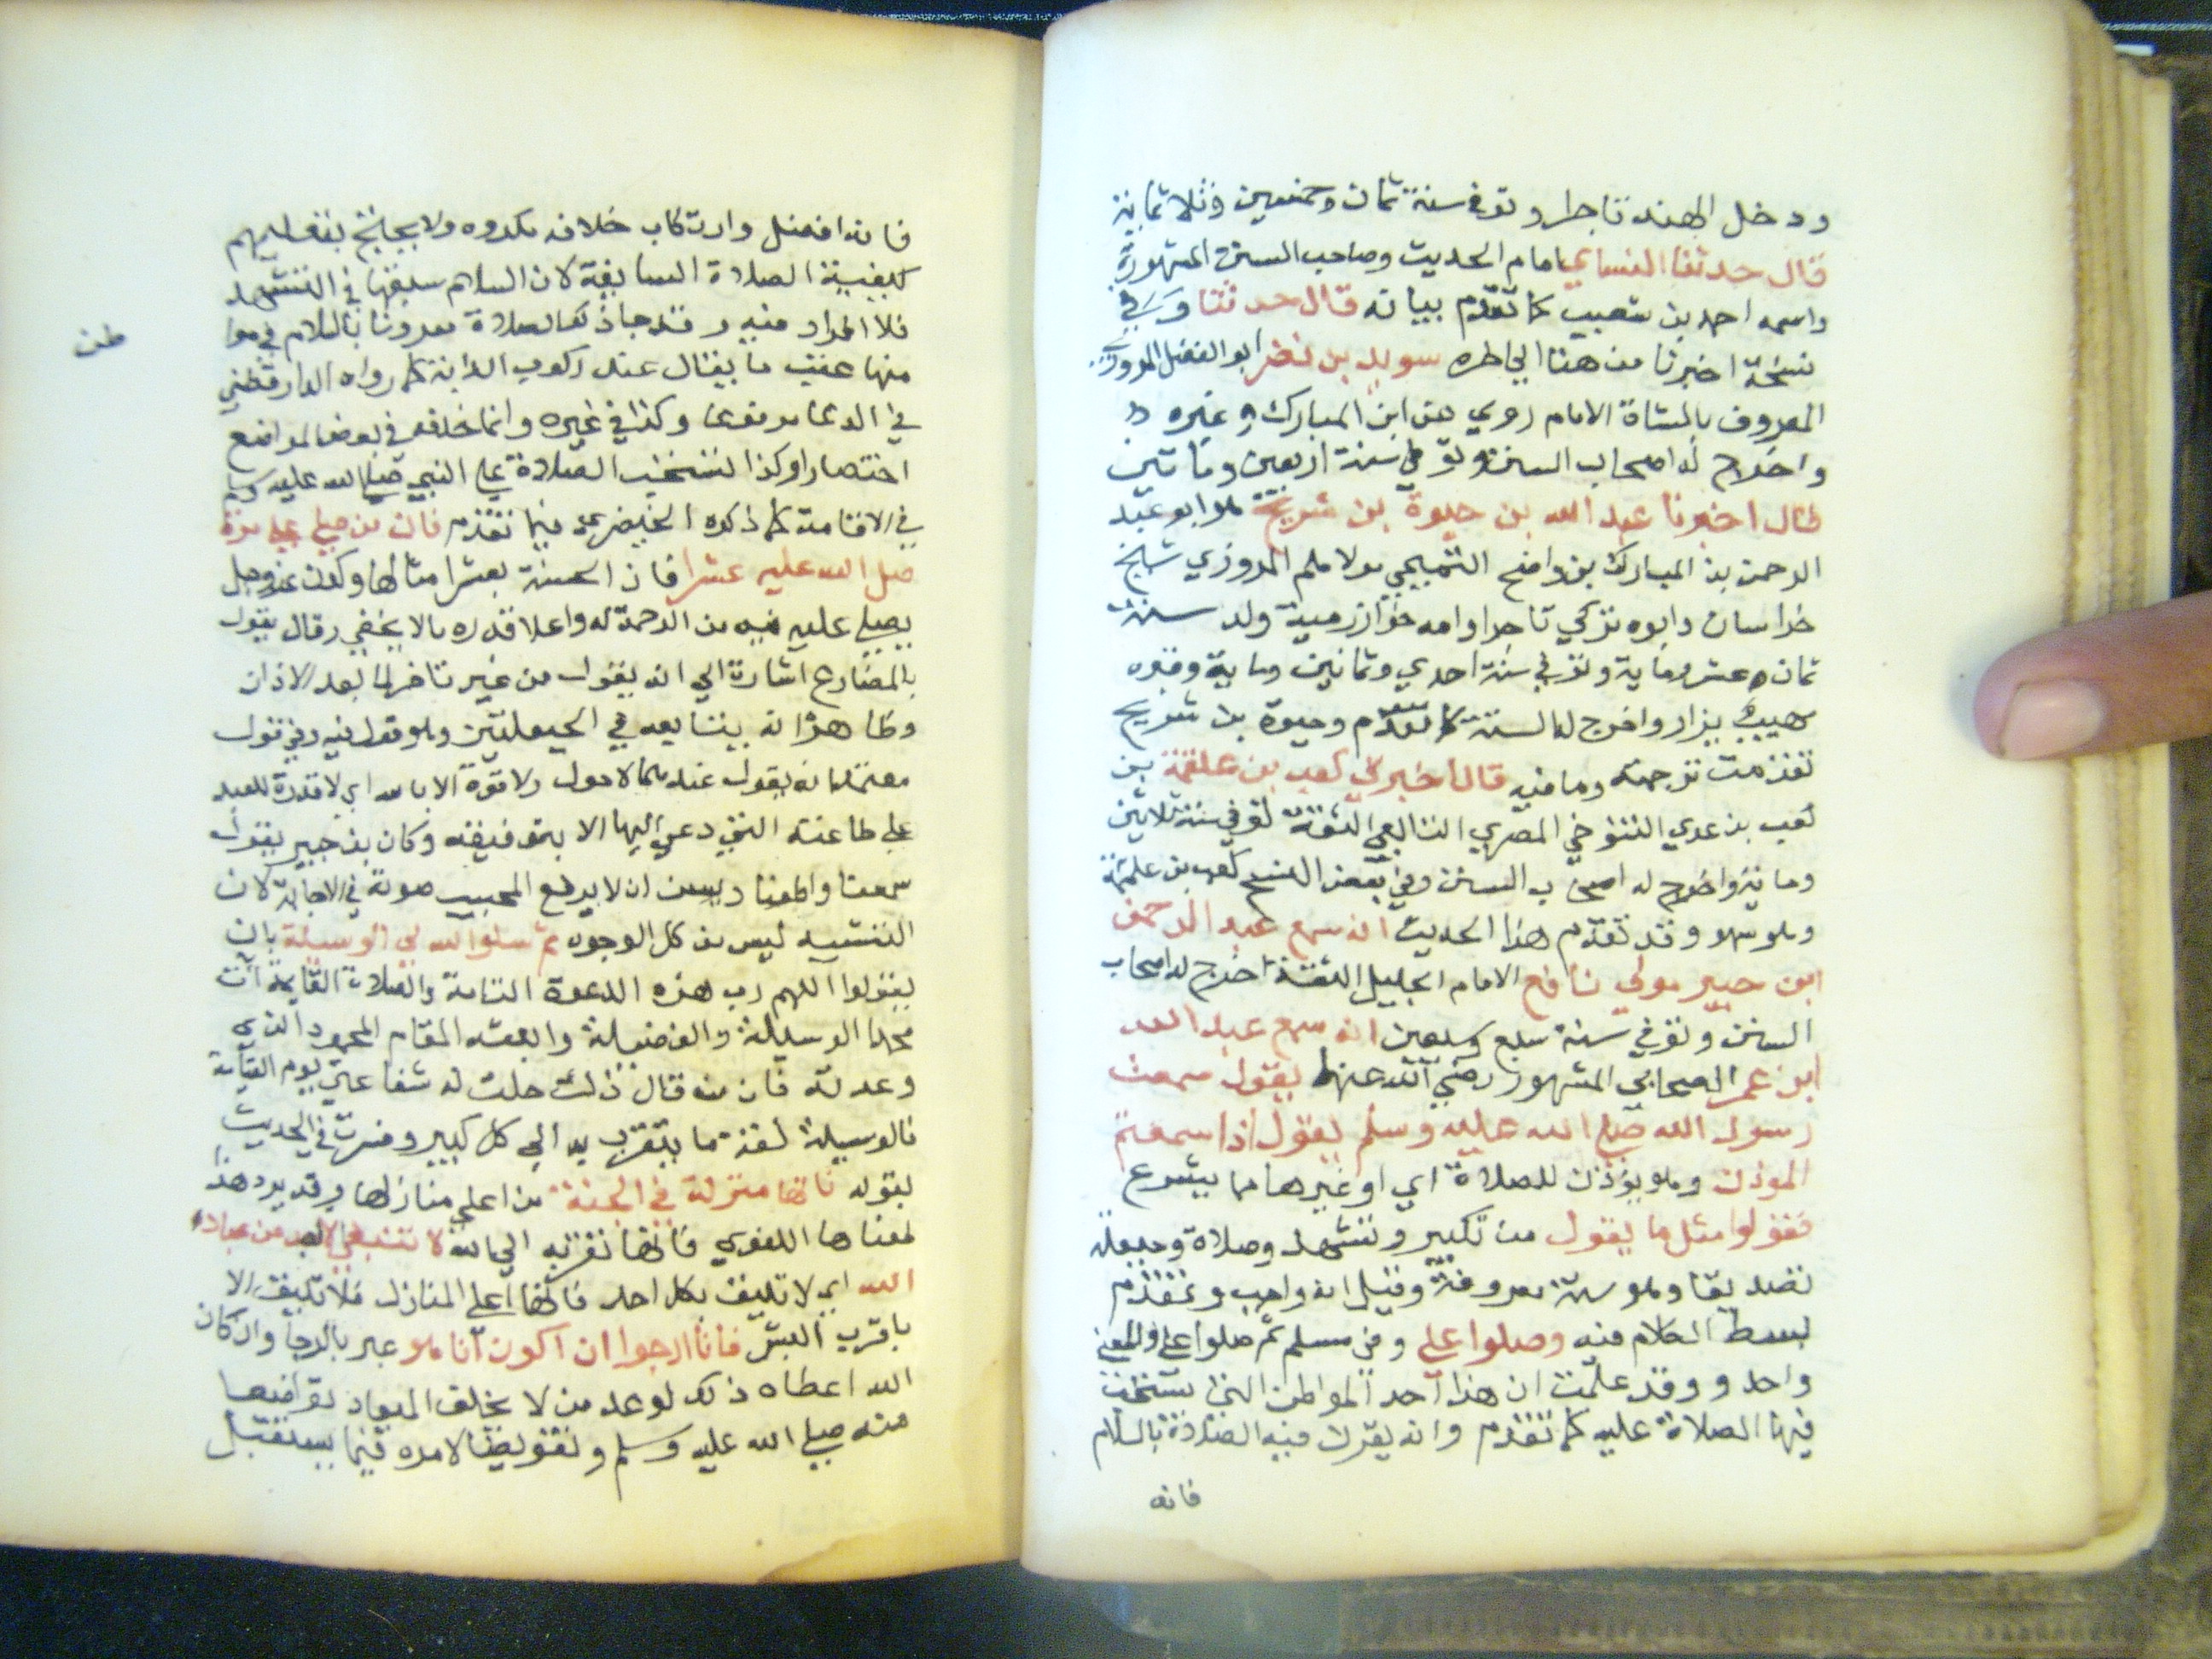 ودخل الهند تاجرا وتوفي سنة ثمان وخمسين وثلاثماية
قال حدثنا النسايي امام الحديث وصاحب السنن المشهورة
واسمه احمد بن شعيب كما تقدم بيانه قال حدثنا وفي
نسخة اخبرنا من هنا الي اخره سويد بن نصر ابو الفضل المروزي
المعروف بالشاة الامام روي عن ابن المبارك وغيره
واخرج له اصحاب السنن وتوفي سنة اربعين وماتين
قال اخبرنا عبد الله بن حيوة بن شريح هو ابو عبد
الرحمن بن المبارك بن واضح التميمي مولاهم المروزي شيخ
خراسان وابوه تركي تاجرا وامه خوارزمية ولد سنة
ثمان وعشر وماية وتوفي سنة احدي وثمانين وماية وقبره
بهيت يزار واخرج له الستة كما تقدم وحيوة بن شريح
تقدمت ترجمته وما فيه قال اخبرني كعب بن علقمة بن
كعب بن عدي التنوخي المصري التابعي الثقة توفي سنة ثلاثين
وماية واخرج له اصحاب السنن وفي بعض النسخ كعب بن علقمة
وهو سهو وقد تقدم هذا الحديث انه سمع عبد الرحمن
ابن جبير مولي نافع الامام الجليل الثقة اخرج له اصحاب
السنن وتوفي سنة سبع وسبعين انه سمع عبد الله
ابن عمر الصحابي المشهور رضي الله عنهما يقول سمعت
رسول الله صلي الله عليه وسلم يقول اذا سمعتم
الموذن وهو يؤذن للصلاة اي او غيرها مما يشرع
فقولوا مثل ما يقول من تكبير وتشهد وصلاة وحيعلة
تصديقا وهو سنة معروفة وقيل انه واجب وتقدم
بسط الكلام فيه وصلوا علي وفي مسلم ثم صلوا علي والمعني
واحد ووقد علمت ان هذا احد المواطن التي يستحب
فيها الصلاة عليه كما تقدم وانه يقرن فيه الصلاة بالسلام
فانه
فانه افضل وارتكاب خلافه مكروه ولا يحتج بتعليمهم
كيفية الصلاة السابقة لان السلام سبقها في التشهد
فلا افراد فيه وقد جا ذكر الصلاة مقرونا بالسلام في مواضع
منها عقب ما يقال عند ركوب الدابة كما رواه الدارقطني
في الدعا مرفوعا وكذا في غيره وانما حذفه في بعض المواضع
اختصارا وكذا تستحب الصلاة علي النبي صلي الله عليه وسلم
في الاقامة كما ذكره الخيضري فيما تقدم فان من صلي علي مرة
صلي الله عليه عشرا فان الحسنة بعشر امثالها وكون عز وجل
يصلي عليه فيه من الرحمة له واعلا قدره ما لا يخفي وقال يقول
بالمضارع اشارة الي انه يقول من غير تاخر لما بعد الاذان
وظاهره انه يتابعه في الحيعلتين وهو قول فيه وفي قول
معتمد انه يقول عندهما لا حول ولا قوة الا بالله اي لا قدرة للعبد
علي طاعته التي دعي اليها الا بتوفيقه وكان بن جبير يقول
سمعنا واطعنا ويسن ان لا يرفع المجيب صوته في الاجابة لان
التشبيه ليس من كل الوجوه ثم سلوا الله لي الوسيلة بان
يقولوا اللهم رب هذه الدعوة التامة والصلاة القايمة آت
محمدا الوسيلة والفضيلة وابعثه المقام المحمود الذي
وعدته فان من قال ذلك حلت له شفاعتي يوم القيامة
فالوسيلة لغة ما يتقرب به الي كل كبير وفسرت في الحديث
بقوله فانها منزلة في الجنة من اعلي منازلها وقد يرد هذا
لمعناها اللغوي فانها تقربه الي الله لا تنبغي الا لعبد من عباد
الله اي لا تليق بكل احد فانها اعلي المنازل فلا تليق الا
باقرب البشر فانا ارجوا ان اكون انا هو عبر بالرجا وان كان
الله اعطاه ذلك لوعد من لا يخلف الميعاد تواضعا
منه صلي الله عليه وسلم وتفويضا لامره فيما يستقبل